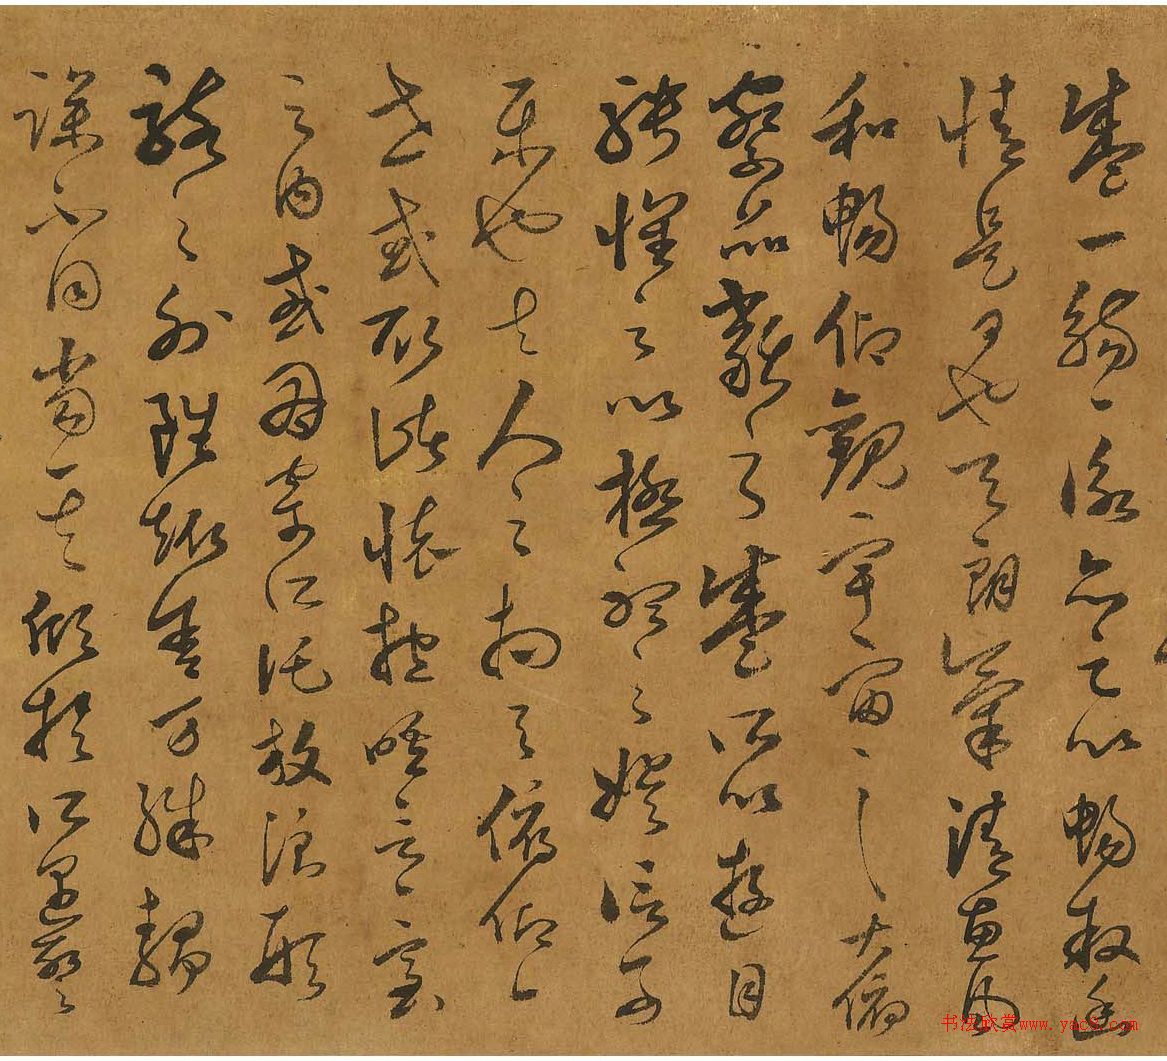 盛一觴一詠亦足以暢敘幽
情是日也天朗氣清惠風
和暢仰觀宇宙之大俯
察品類之盛所以遊目
騁懷足以極視聽之娛信可
樂也夫人之相與俯仰一
世或取諸懷抱悟言一室
之內或因寄所託放浪形
骸之外雖趣舍万殊靜
躁不同當其欣於所遇蹔
书法欣赏www.yac8.com